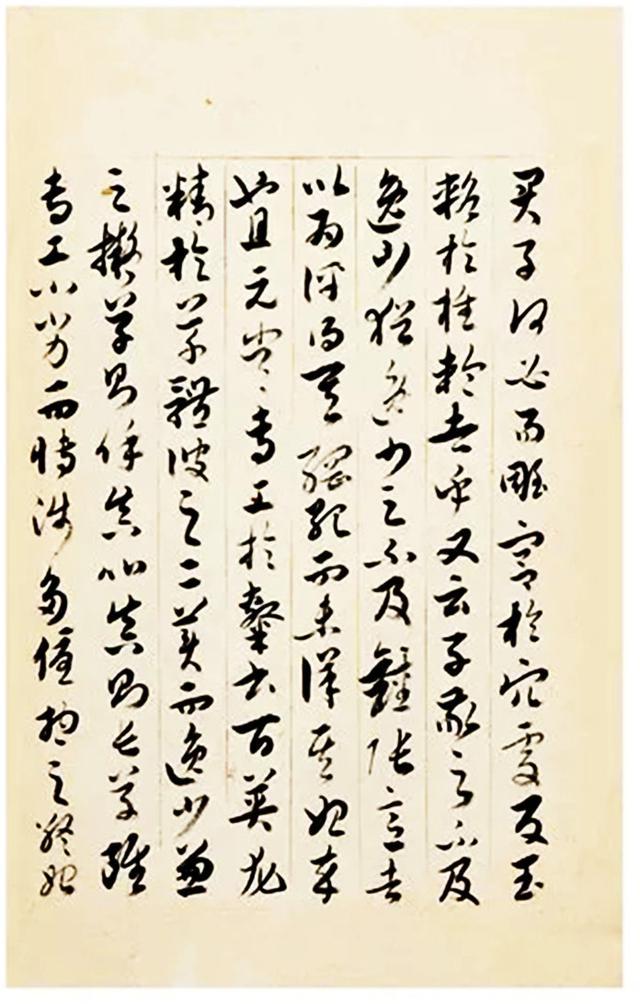 君子何必易雕宮於穴處反玉
輅於椎輪者乎又云子敬之不及
逸少猶逸少之不及鍾張意者
以為評得其綱紀而未詳其始卒
也且元常專工於隸書百英尤
精於草體彼之二美而逸少兼
之擬草則餘真比真則長草雖
專工小劣而博涉多優揔其終始